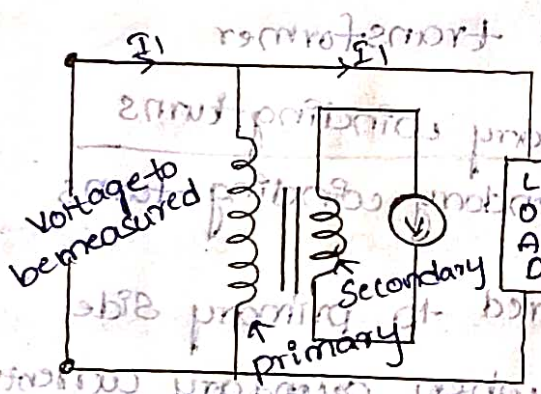 I1
I1
voltage to
be measured
LOAD
secondary
primary